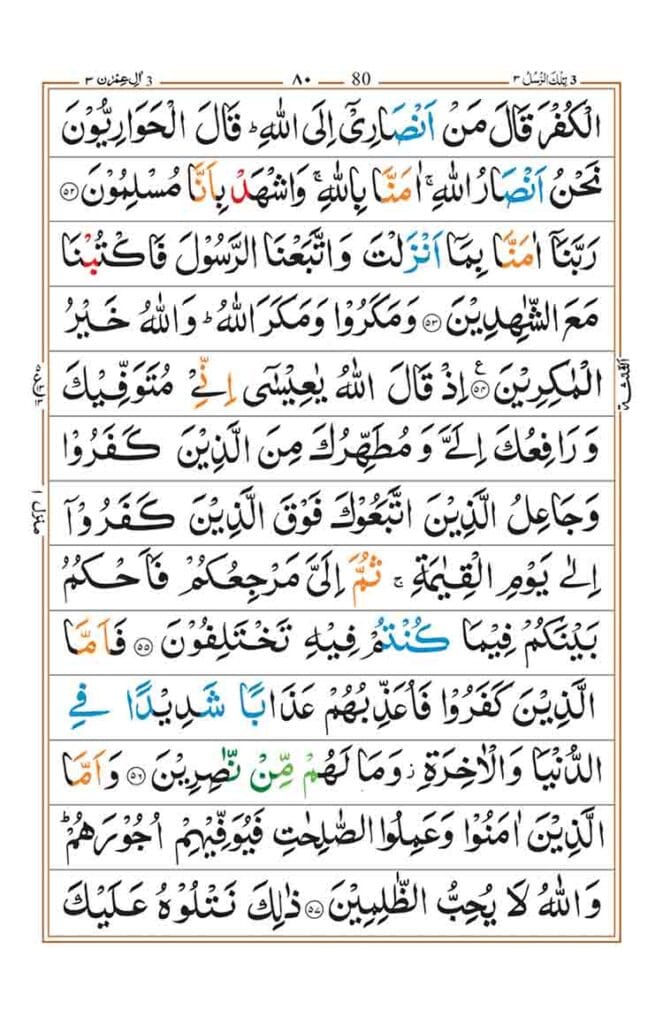 3 تِلْكَ الرُّسُلُ ٣
80 ٨٠
3 اٰلِ عِمْرٰن ٣
الْكُفْرَ قَالَ مَنْ اَنْصَارِیْۤ اِلَی اللهِ ؕ قَالَ الْحَوَارِیُّوْنَ
نَحْنُ اَنْصَارُ اللهِ ۚ اٰمَنَّا بِاللهِ ۚ وَاشْهَدْ بِاَنَّا مُسْلِمُوْنَ ۝۵۲
رَبَّنَاۤ اٰمَنَّا بِمَاۤ اَنْزَلْتَ وَاتَّبَعْنَا الرَّسُوْلَ فَاكْتُبْنَا
مَعَ الشّٰهِدِیْنَ ۝۵۳ وَمَكَرُوْا وَمَكَرَ اللهُ ؕ وَاللهُ خَیْرُ
الْمٰكِرِیْنَ ۝۵۴ ع اِذْ قَالَ اللهُ یٰعِیْسٰۤی اِنِّیْ مُتَوَفِّیْكَ
الثلٰثة
وَرَافِعُكَ اِلَیَّ وَمُطَهِّرُكَ مِنَ الَّذِیْنَ كَفَرُوْا
وَجَاعِلُ الَّذِیْنَ اتَّبَعُوْكَ فَوْقَ الَّذِیْنَ كَفَرُوْۤا
منزل ١
اِلٰی یَوْمِ الْقِیٰمَةِ ۚ ثُمَّ اِلَیَّ مَرْجِعُكُمْ فَاَحْكُمُ
بَیْنَكُمْ فِیْمَا كُنْتُمْ فِیْهِ تَخْتَلِفُوْنَ ۝۵۵ فَاَمَّا
الَّذِیْنَ كَفَرُوْا فَاُعَذِّبُهُمْ عَذَابًا شَدِیْدًا فِی
الدُّنْیَا وَالْاٰخِرَةِ ؗ وَمَا لَهُمْ مِّنْ نّٰصِرِیْنَ ۝۵۶ وَاَمَّا
الَّذِیْنَ اٰمَنُوْا وَعَمِلُوا الصّٰلِحٰتِ فَیُوَفِّیْهِمْ اُجُوْرَهُمْ ؕ
وَاللهُ لَا یُحِبُّ الظّٰلِمِیْنَ ۝۵۷ ذٰلِكَ نَتْلُوْهُ عَلَیْكَ